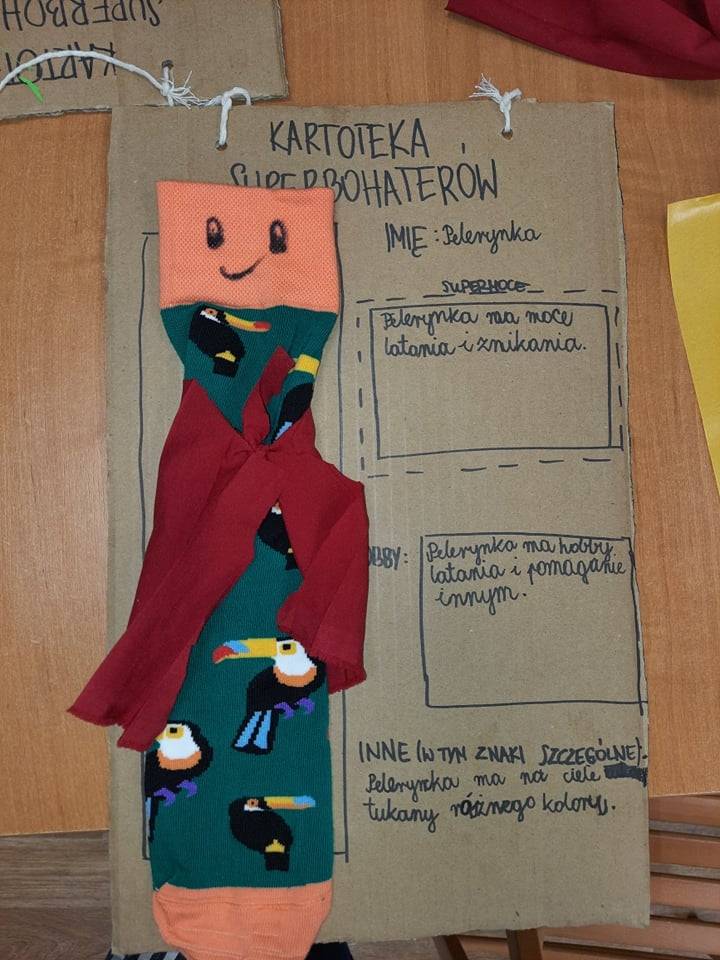 SUPERBOH
KARTOT
KARTOTEKA
SUPERBOHATERÓW
IMIĘ: Pelerynka
SUPERMOCE
Pelerynka ma moce
latania i znikania.
OBBY:
Pelerynka ma hobby
latania i pomaganie
innym.
INNE (W TYM ZNAKI SZCZEGÓLNE).
Pelerynka ma na ciele
tukany różnego koloru.